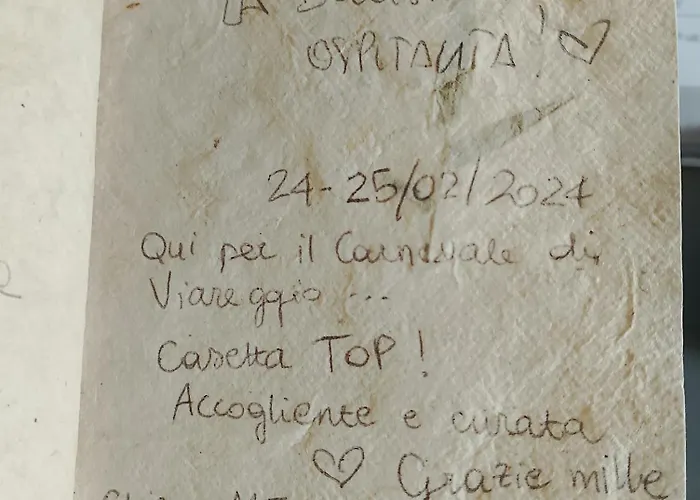 LA
OSPITALITA! ♡
24-25/02/2024
Qui per il Carnevale di
Viareggio ...
Casetta TOP!
Accogliente e curata
♡ Grazie mille